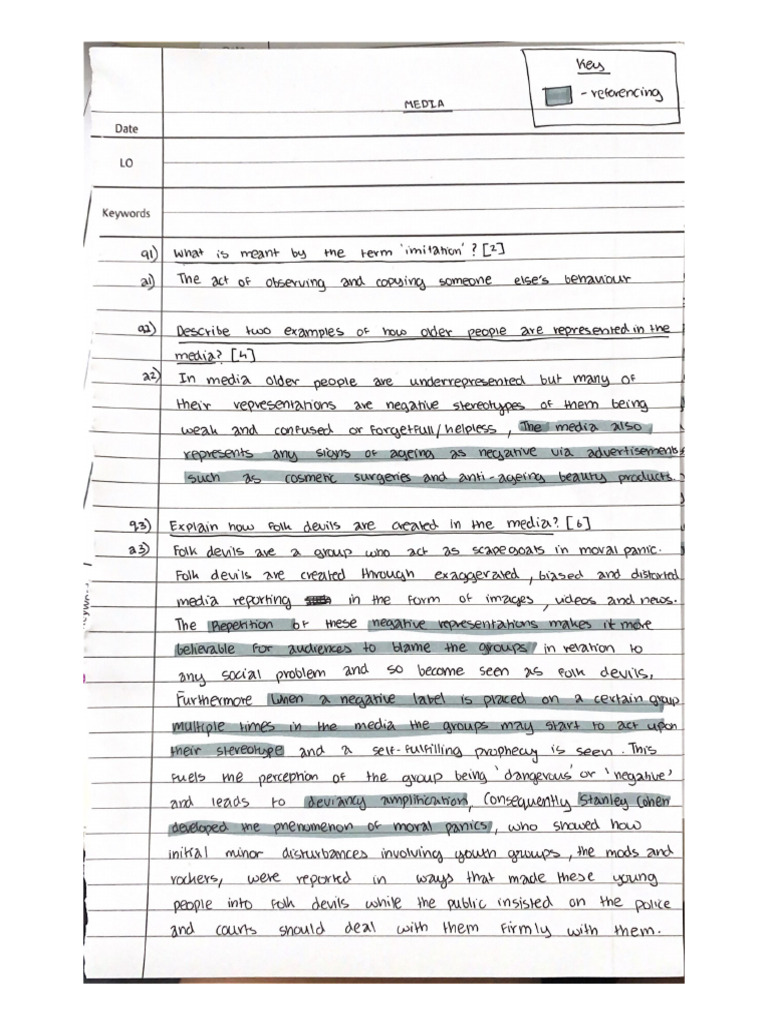 Key
- referencing
MEDIA
Date
LO
Keywords
q1) What is meant by the term 'imitation'? [2]
a1) The act of observing and copying someone else's behaviour
q2) Describe two examples of how older people are represented in the
media? [4]
a2) In media older people are underrepresented but many of
their representations are negative stereotypes of them being
weak and confused or forgetfull/helpless, The media also
represents any signs of ageing as negative via advertisements
such as cosmetic surgeries and anti-ageing beauty products.
q3) Explain how folk devils are created in the media? [6]
a3) Folk devils are a group who act as scapegoats in moral panic.
Folk devils are created through exaggerated, biased and distorted
media reporting in the form of images, videos and news.
The Repetition of these negative representations makes it more
believable for audiences to blame the groups in relation to
any social problem and so become seen as folk devils,
Furthermore when a negative label is placed on a certain group
multiple times in the media the groups may start to act upon
their stereotype and a self-fulfilling prophecy is seen. This
fuels the perception of the group being 'dangerous' or 'negative'
and leads to deviancy amplification, Consequently Stanley Cohen
developed the phenomenon of moral panics, who showed how
initial minor disturbances involving youth groups, the mods and
rockers, were reported in ways that made these young
people into folk devils while the public insisted on the police
and courts should deal with them firmly with them.